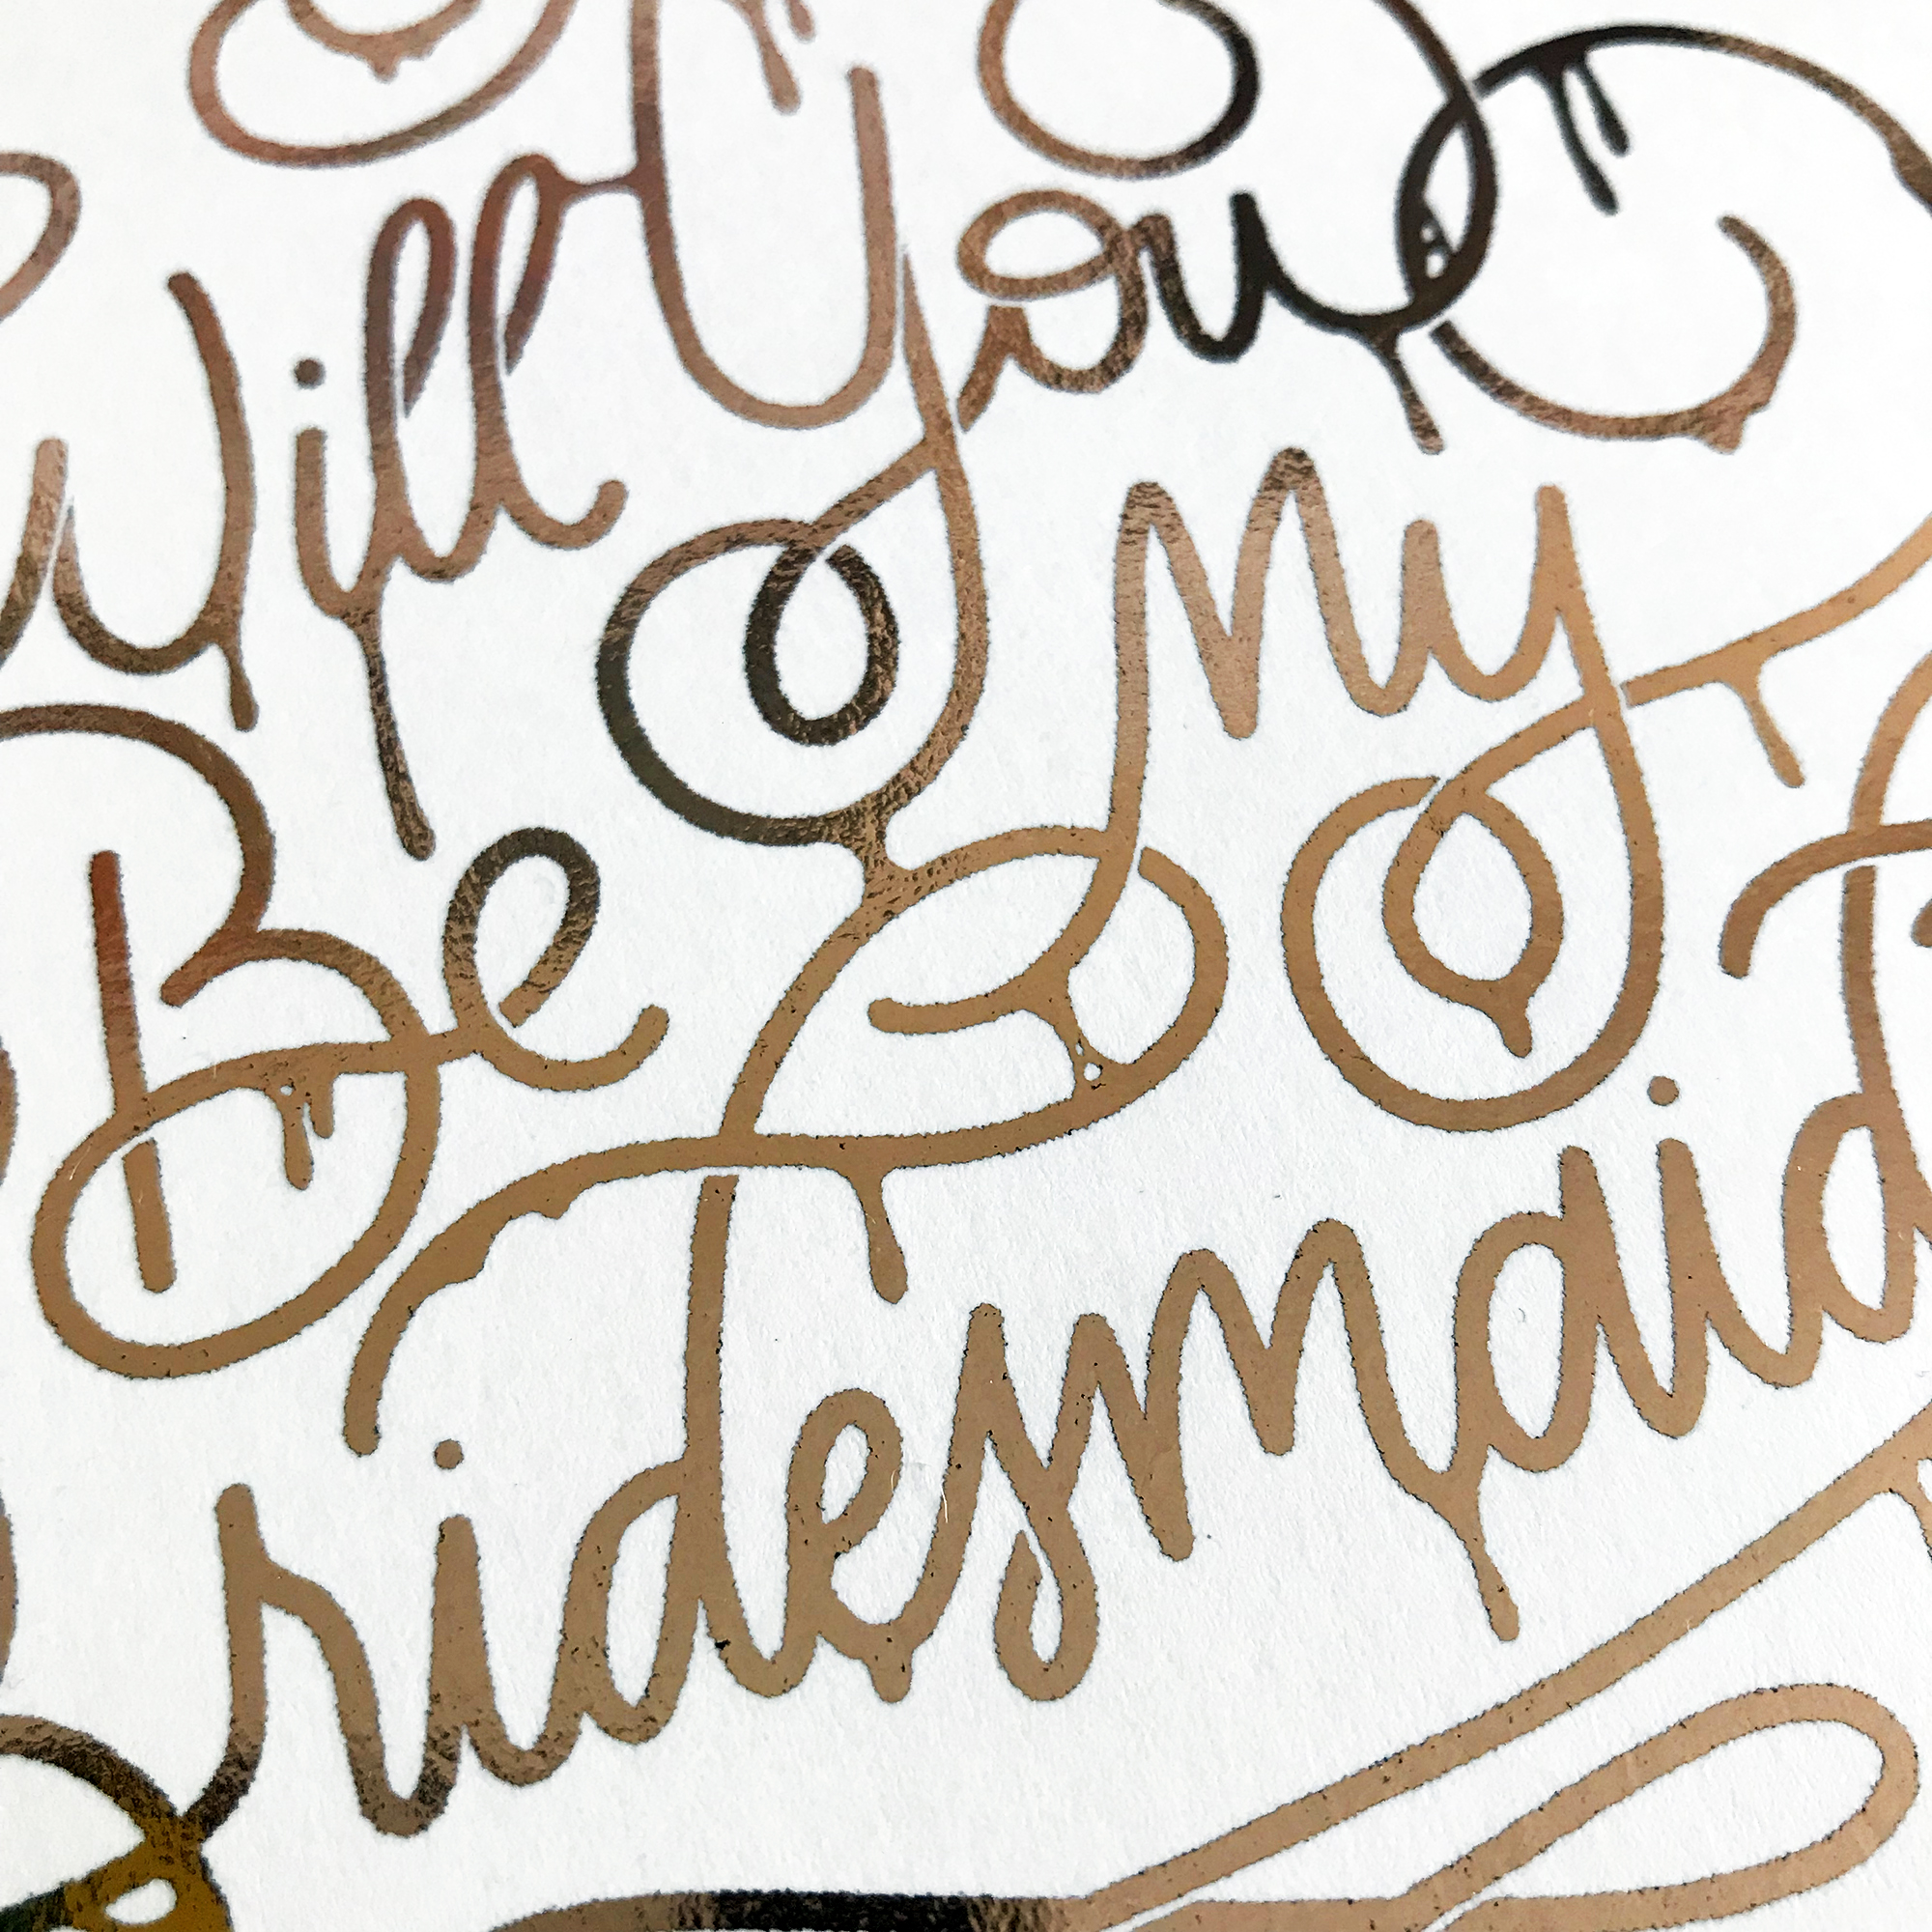 Will You
Be My
Bridesmaid